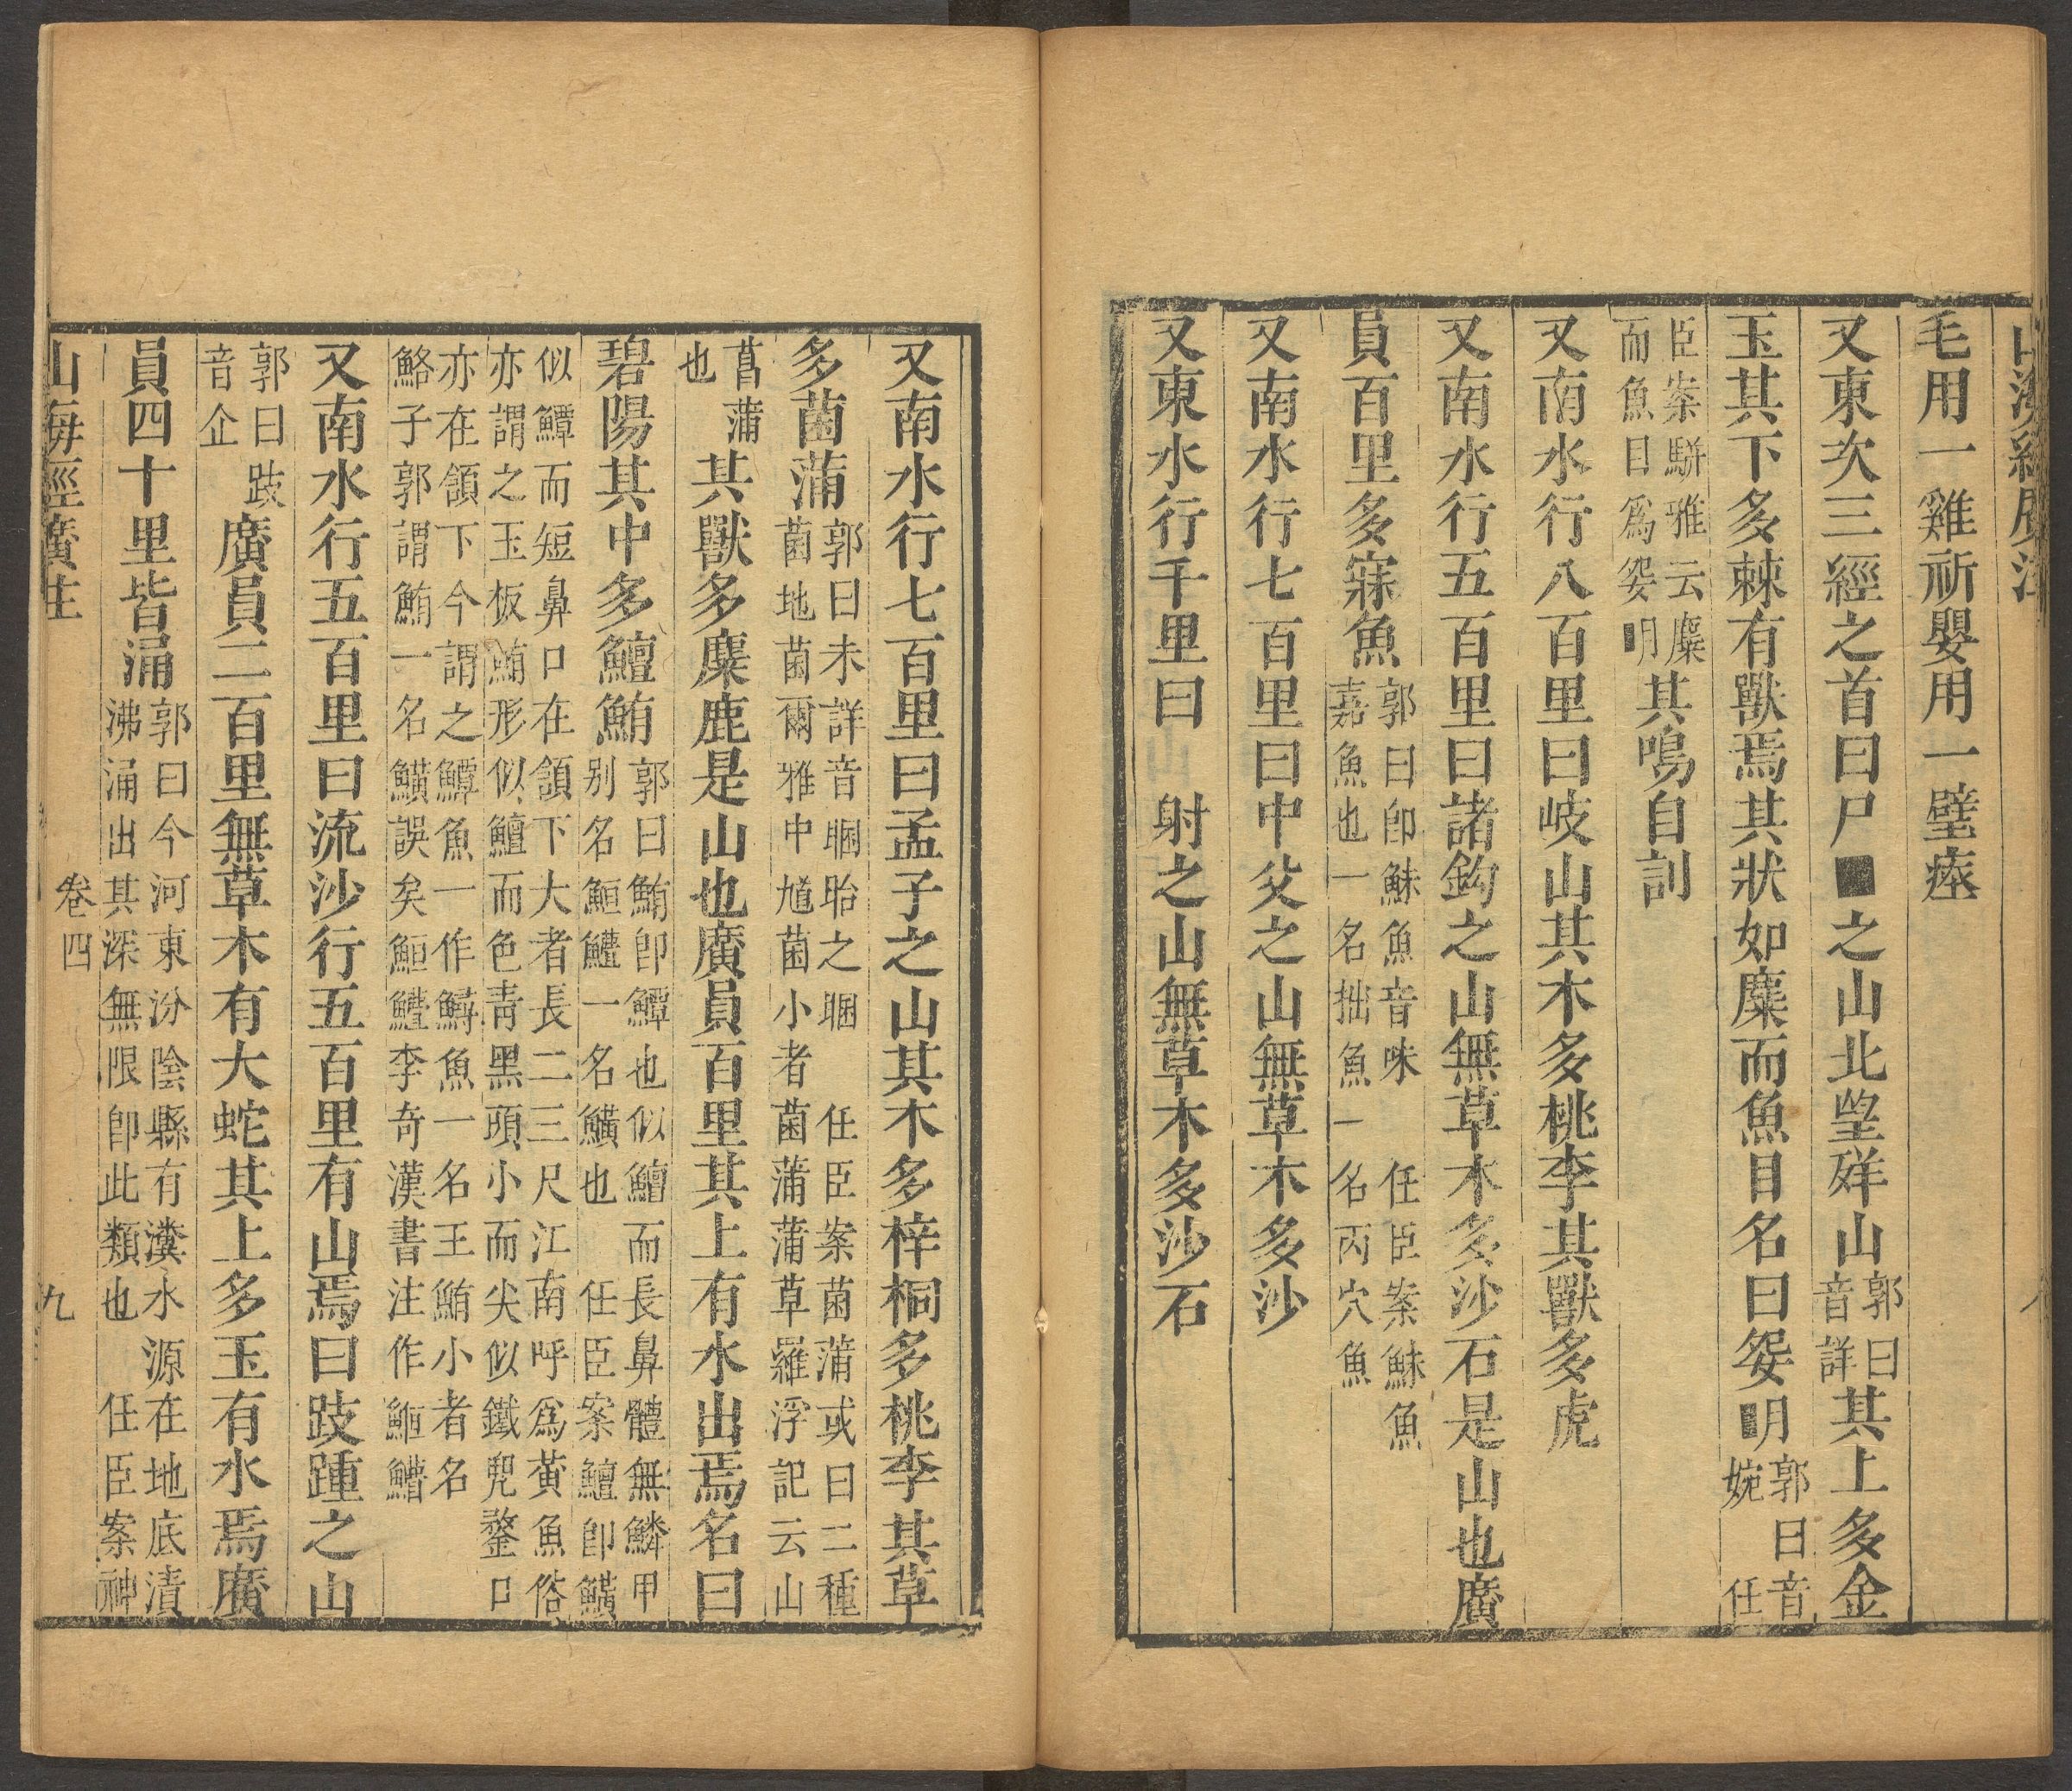 山海經廣注
毛用一雞祈嬰用一璧瘞
又東次三經之首曰尸■之山北望𦍲山郭曰音詳其上多金
玉其下多棘有獸焉其狀如麋而魚目名曰妴■月郭曰音婉任
臣案駢雅云麋而魚目爲妴■月其鳴自訓
又南水行八百里曰岐山其木多桃李其獸多虎
又南水行五百里曰諸鉤之山無草木多沙石是山也廣
員百里多寐魚郭曰卽鮇魚音味任臣案鮇魚嘉魚也一名拙魚一名丙穴魚
又南水行七百里曰中父之山無草木多沙
又東水行千里曰 射之山無草木多沙石
又南水行七百里曰孟子之山其木多梓桐多桃李其草
多菌蒲郭曰未詳音䐃胎之䐃任臣案菌蒲或曰二種菌地菌爾雅中馗菌小者菌蒲蒲草羅浮記云山
菖蒲也其獸多麋鹿是山也廣員百里其上有水出焉名曰
碧陽其中多鱣鮪郭曰鮪卽鱏也似鱣而長鼻體無鱗甲别名䱭䲛一名鱑也任臣案鱣卽鱑
似鱏而短鼻口在頷下大者長二三尺江南呼爲黃魚俗亦謂之玉板鮪形似鱣而色靑黑頭小而尖似鐵兜鍪口
亦在頷下今謂之鱏魚一作鱘魚一名王鮪小者名鮥子郭謂鮪一名鱑誤矣䱭䲛李奇漢書注作䱭䲛
又南水行五百里曰流沙行五百里有山焉曰跂踵之山
郭曰跂音企廣員二百里無草木有大蛇其上多玉有水焉廣
員四十里皆涌郭曰今河東汾陰縣有瀵水源在地底濆沸涌出其深無限卽此類也任臣案神
山海經廣注 卷四 九